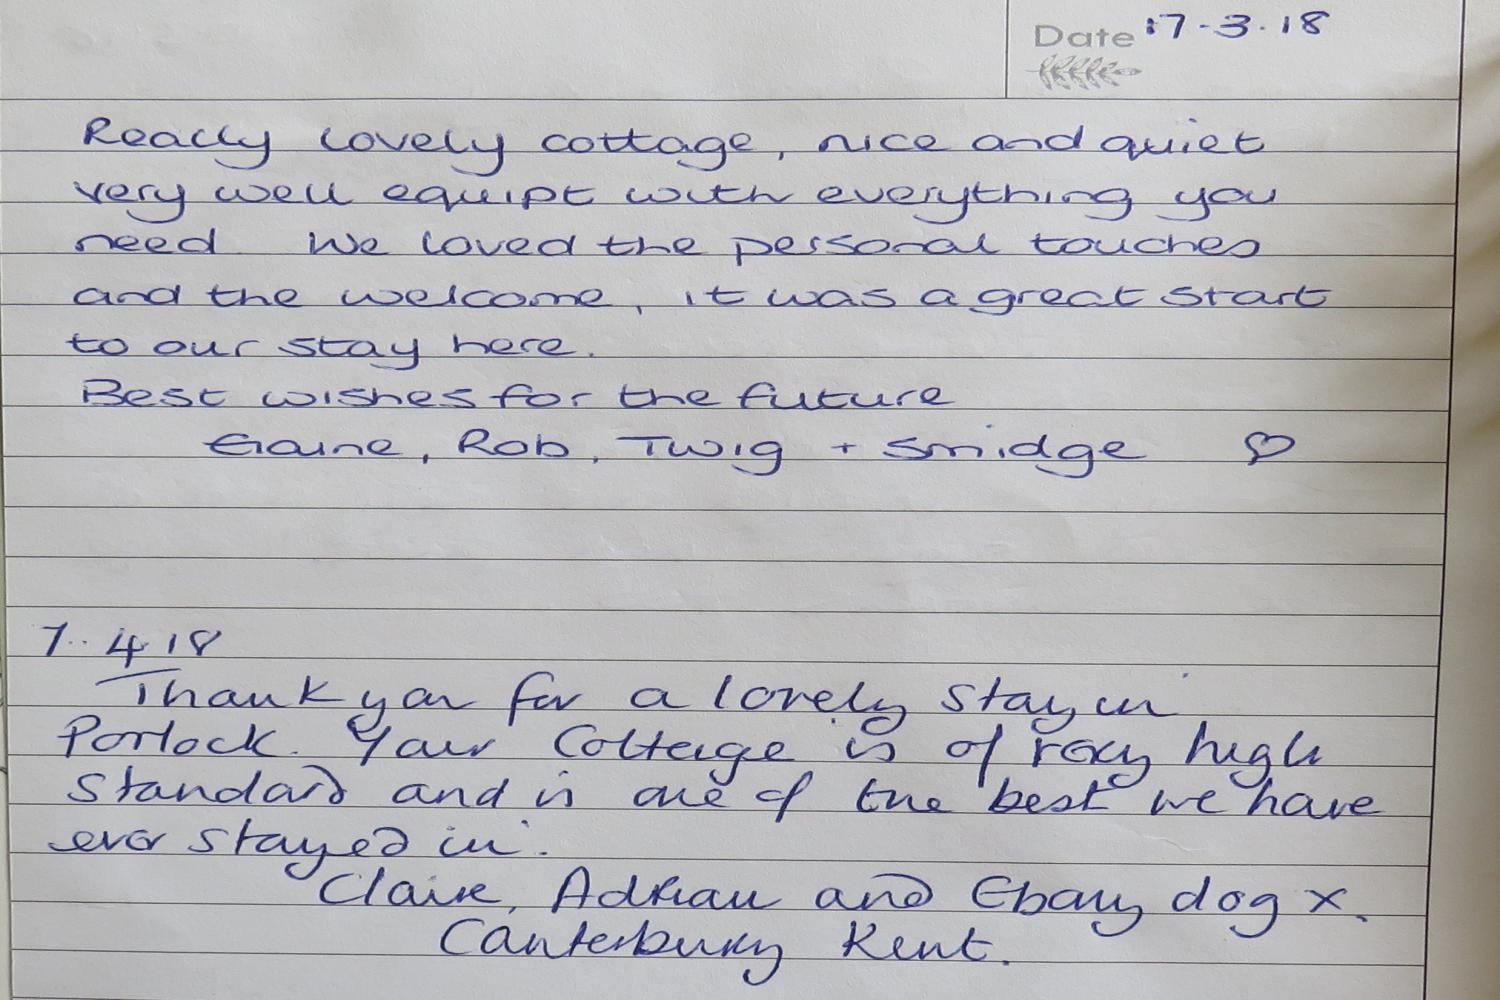 Date 17-3.18
Really lovely cottage, nice and quiet
very well equipt with everything you
need. We loved the personal touches
and the welcome, it was a great start
to our stay here.
Best wishes for the future
Elaine, Rob, Twig + Smidge ♡
7.4.18
Thank you for a lovely stay in
Porlock. Your Cottage is of very high
Standard and is one of the best we have
ever stayed in.
Claire, Adrian and Ebony dog x.
Canterbury Kent.